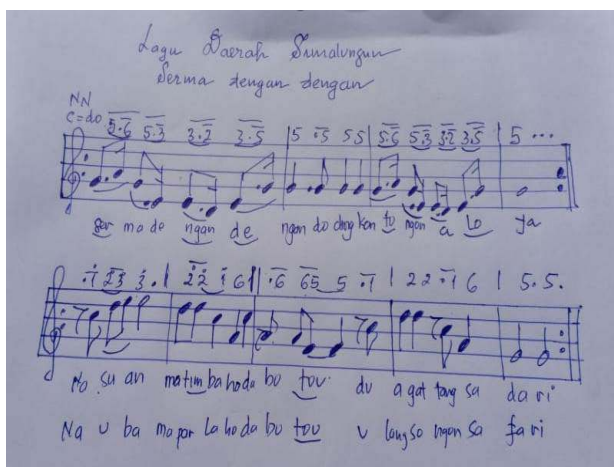 Lagu Daerah Simalungun
Serma dengan dengan
NN
C=do
5.6 5.3 3.2 3.5 | 5 .3 5 5 | 5.6 5.3 3.2 3.5 | 5 ...
ser ma de ngan de ngan do ding kon to ngon a lo ya
.1 23 3. | 22 1 6 | .6 65 5 .1 | 2 2 .1 6 | 5. 5.
No su an matim ba ho da bo tou du a gat tang sa da ri
Na u ba ma par la ho da bo tou u lang so ngon sa fari